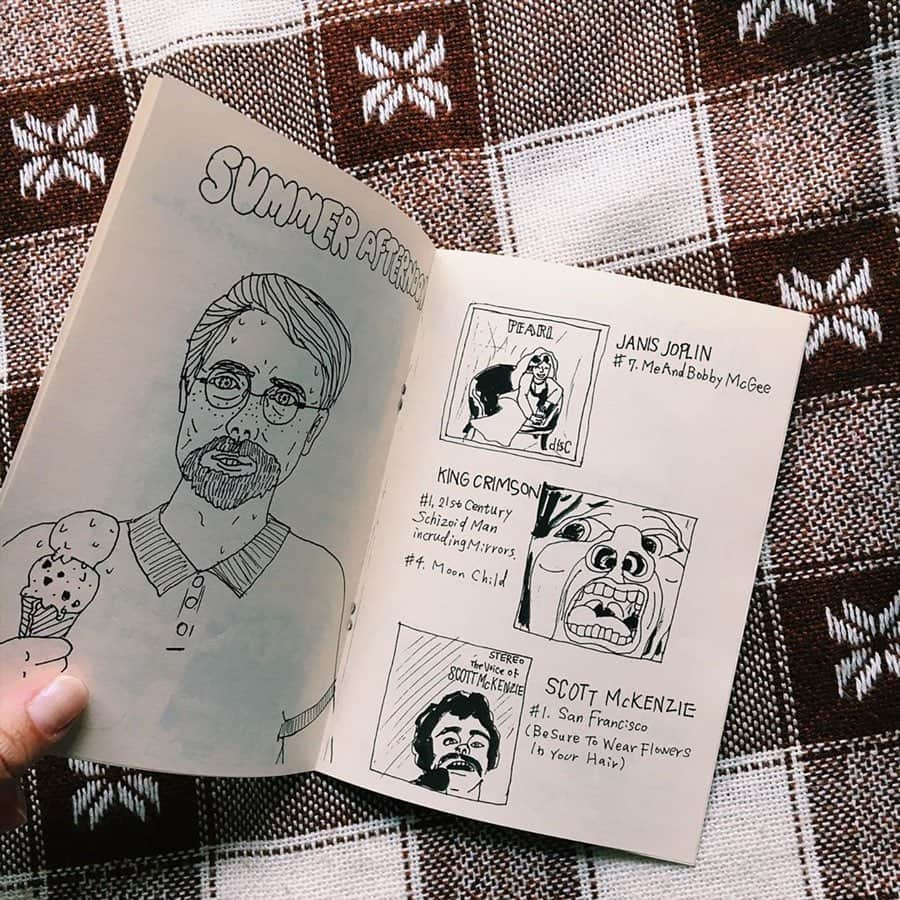 SUMMER AFTERNOON
PEARL
disC
JANIS JOPLIN
#7. Me And Bobby McGee
KING CRIMSON
#1. 21st Century
Schizoid Man
incruding Mirrors.
#4. Moon Child
STEREO
The Voice of
SCOTT McKENZIE
SCOTT McKENZIE
#1. San Francisco
(Be Sure To Wear Flowers
In Your Hair)